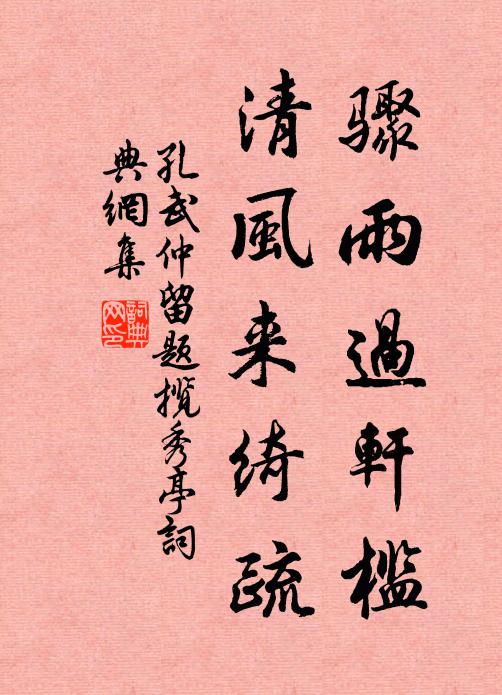 驟雨過軒檻
清風来綺疏
孔武仲留題攬秀亭詞
典網集
詞典網印